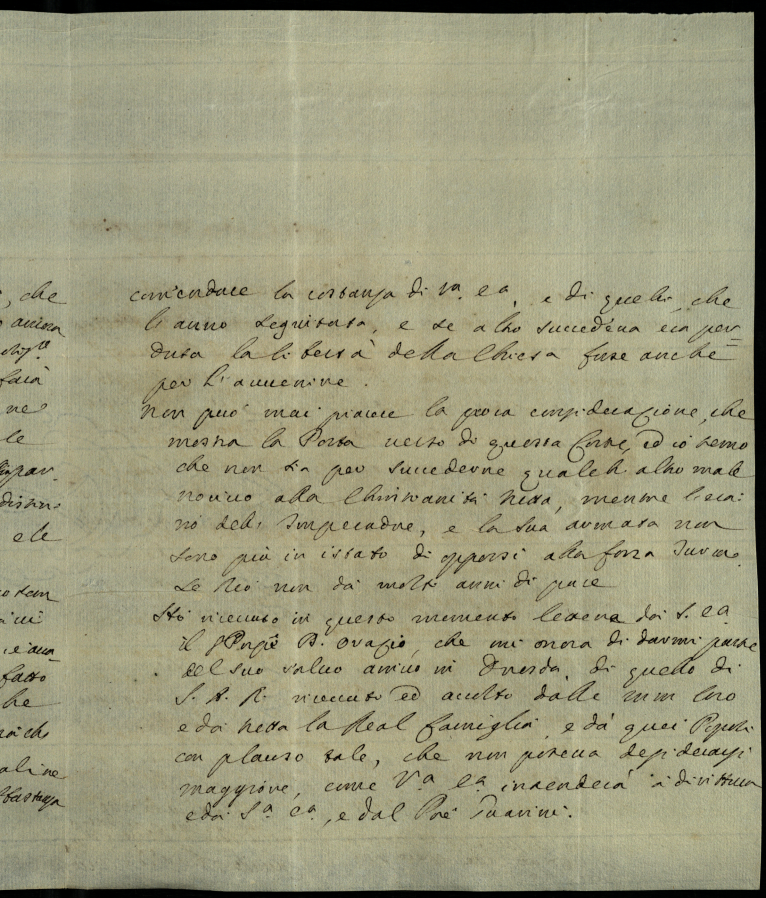 com'endare la costanza di V.a E.a, e di quelli, che
l'anno seguitata, e se altro succedeva era per=
duta la libertà della Chiesa forse anche
per l'avvenire.
Non può mai piacere la poca considerazione, che
mostra la Porta verso di questa Corte, ed io temo
che non sia per succederne qualch' altro male
nocivo alla Christianità tutta, mentre l'erario
nò dell' Imperadore, e la sua armata non
sono più in istato di opporsi alla forza Turca
se non da molti anni di pace
Hò ricevuto in questo momento lettera da S. E.a
il P. D. Orazio, che mi onora di darmi parte
del suo salvo arrivo in Dresda, di quello di
S. A. R. ricevuto ed accolto dalle MM loro
e da tutta la Real famiglia, e da quei Popoli
con plauso tale, che non poteva desiderarsi
maggiore, come V.a E.a intenderà à dirittura
e da S.a E.a, e dal Guarini.
che
ancora
farà
ne
le
e le
fatto
che